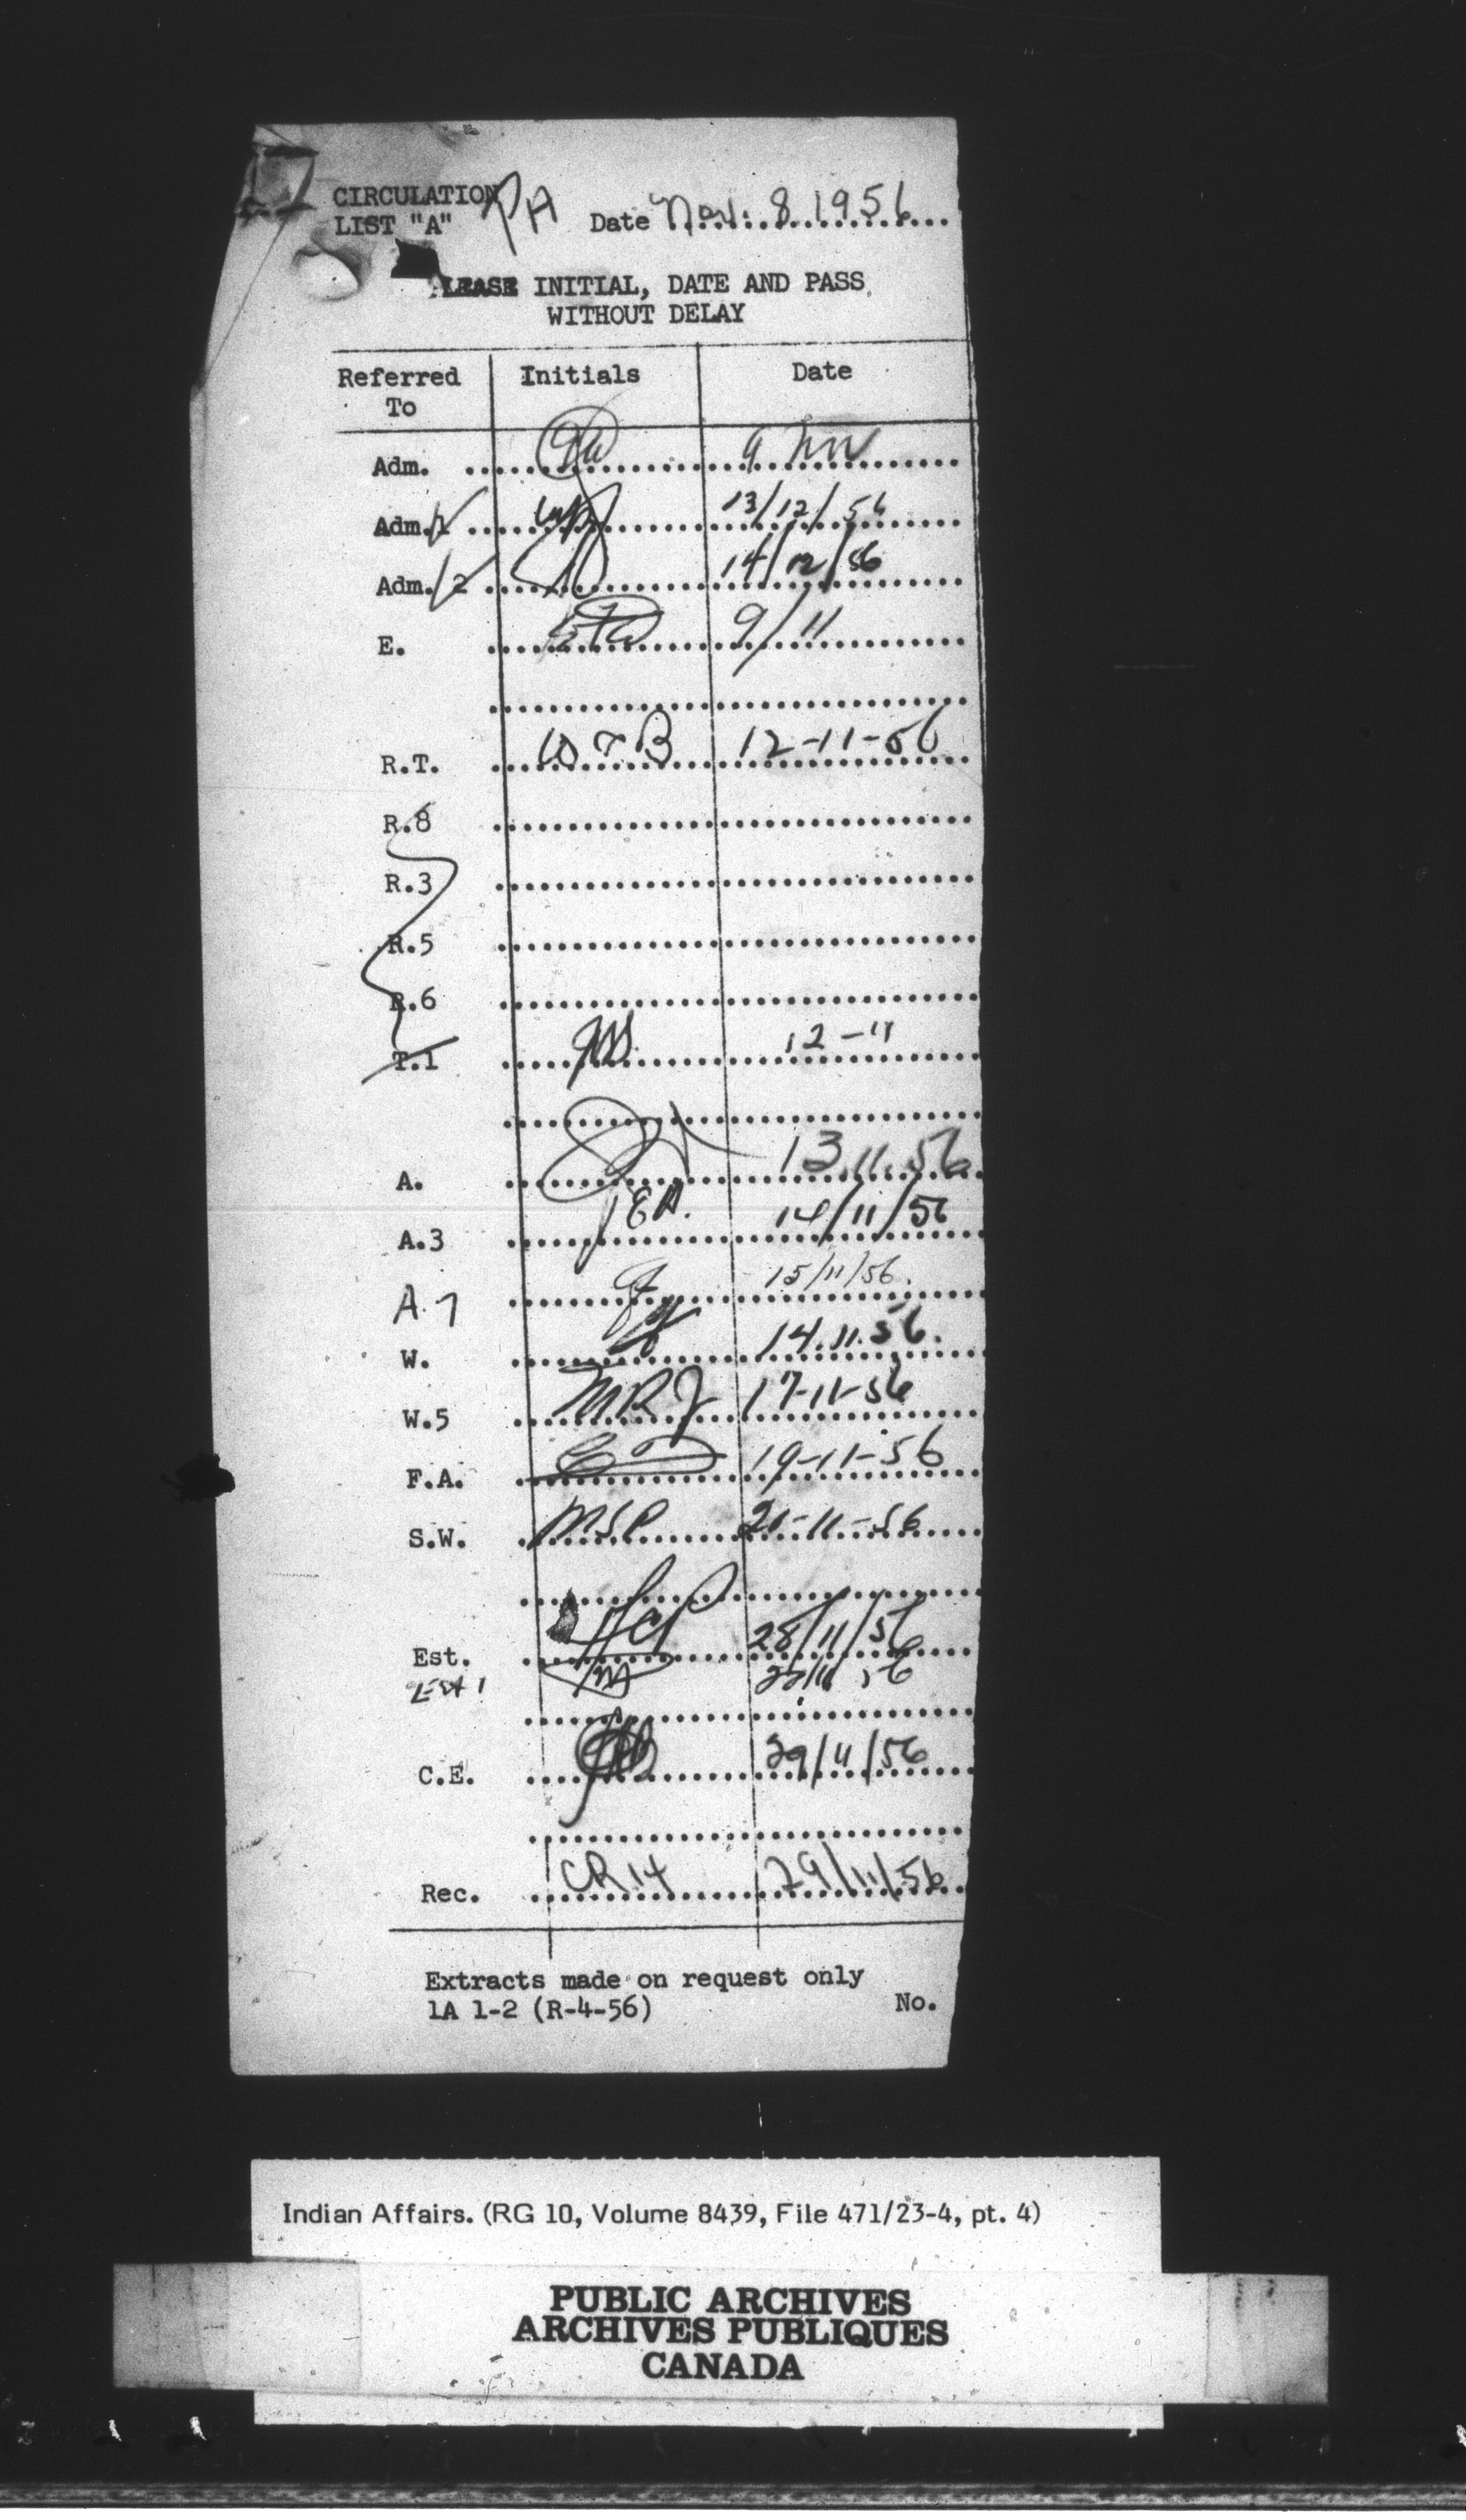 CIRCULATION PA
LIST "A" Date Nov. 8 1956
LEASE INITIAL, DATE AND PASS
WITHOUT DELAY
Referred Initials Date
To
Adm. 9 Nov
Adm./1 13/12/56
Adm./2 14/12/56
E. 9/11
R.T. 12-11-56
R.8
R.3
R.5
R.6
T.1 12-11
A. 13.11.56
A.3 JEA. 14/11/56
A.7 15/11/56.
W. 14.11.56.
W.5 MRJ 17-11-56
F.A. 19-11-56
S.W. MSP 21-11-56
Est. 28/11/56
Est 1
C.E. 29/11/56
Rec. CR14 29/11/56
Extracts made on request only
1A 1-2 (R-4-56) No.
Indian Affairs. (RG 10, Volume 8439, File 471/23-4, pt. 4)
PUBLIC ARCHIVES
ARCHIVES PUBLIQUES
CANADA